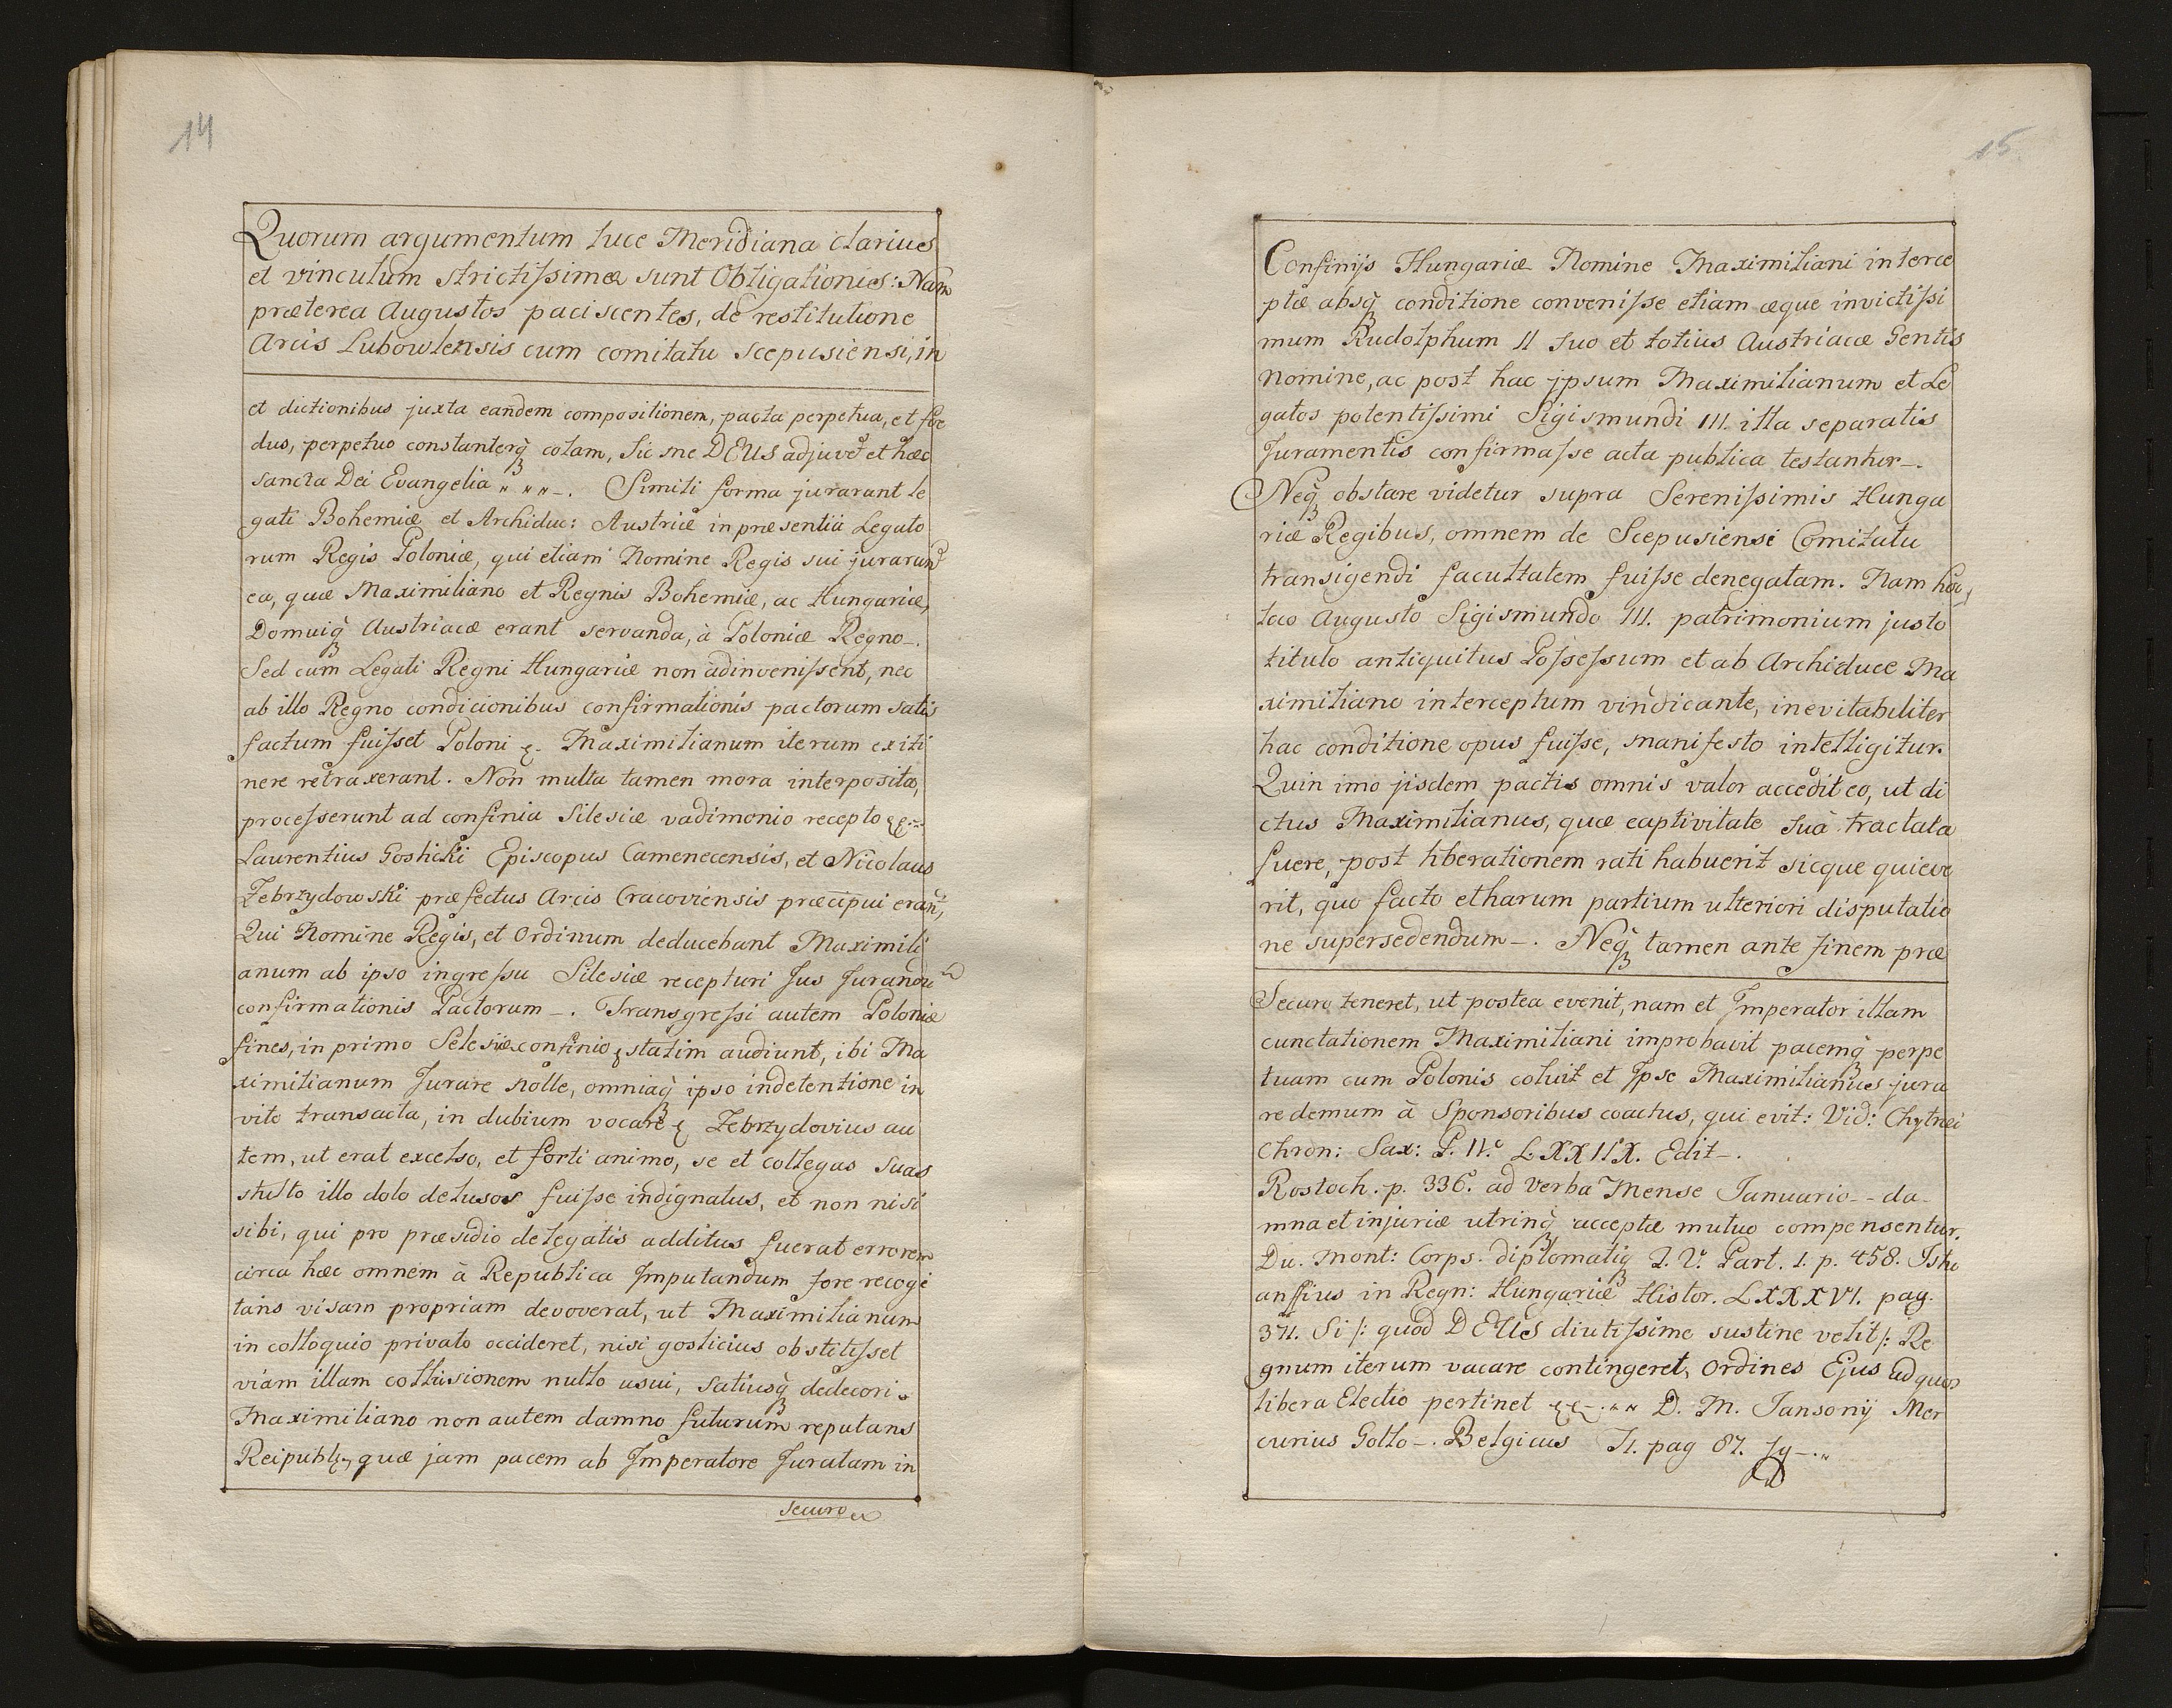 14
Quorum argumentum luce Meridiana clarius
et vinculum strictissimæ sunt Obligationis: Nam
præterea Augustos paciscentes, de restitutione
Arcis Lubowlensis cum comitatu scepusiensi, in
et dictionibus juxta eandem compositionem, pacta perpetua, et foe
dus, perpetuo constanterq̀ꝫ colam, sic me DEUS adjuvet et hæc
sancta Dei Evangelia „ „ „ –. Simili forma jurarant le
gati Bohemiæ et Archiduc: Austriæ in præsentiâ Legato
rum Regis Poloniæ, qui etiam Nomine Regis sui jurarunt
ea, quæ Maximiliano et Regnis Bohemiæ, ac Hungariæ,
Domuiq̀ꝫ Austriacæ erant servanda, à Poloniæ Regno –.
Sed cum Legati Regni Hungariæ non adinvenissent, nec
ab illo Regno condicionibus confirmationis pactorum satis
factum fuisset Poloni &. Maximilianum iterum ex iti
nere retraxerant. Non multa tamen mora interposita,
processerunt ad confinia Silesiæ vadimonio recepto &&.–
Laurentius Goslicki Episcopus Camenecensis, et Nicolaus
Zebrzydowski præfectus Arcis Cracoviensis præcipui erant,
Qui Nomine Regis, et Ordinum deducebant Maximili
anum ab ipso ingressu Silesiæ recepturi Jus Jurandu
confirmationis Pactorum –. Transgressi autem Poloniæ
fines, in primo Selesiæ confinio & statim audiunt, ibi Ma
ximilianum Jurare nolle, omniaq̀ꝫ ipso indetentione in
vito transacta, in dubium vocare & Zebrzydovius au
tem, ut erat excelso, et forti animo, se et collegas suas
stulto illo dolo delusos fuisse indignatus, et non nisi
sibi, qui pro præsidio delegatis additus fuerat errorem
circa hæc omnem à Republica Imputandum fore recogi
tans visam propriam devoverat, ut Maximilianum
in colloquio privato occideret, nisi goslicius obstitisset
viam illam collusionem nullo usui, satiusq̀ꝫ dedecori
Maximiliano non autem damno futurum reputans
Reipubl, quæ jam pacem ab Imperatore Juratam in
securo
15
Confinijs Hungariæ Nomine Maximiliani interce
ptæ absq̀ꝫ conditione convenisse etiam æque invictissi
mum Rudolphum II suo et totius Austriacæ Gentis
Nomine, ac post hac jpsum Maximilianum et Le
gatos potentissimi Sigismundi III. illa separatis
Juramentis confirmasse acta publica testantur –.
Neq̀ꝫ obstare videtur supra Serenissimis Hunga
riæ Regibus, omnem de Scepusiensi Comitatu
transigendi facultatem fuisse denegatam. Nam hoc
loco Augusto Sigismundo III. patrimonium justo
titulo antiquitus Possessum et ab Archiduce Ma
ximiliano interceptum vindicante, inevitabiliter
hac conditione opus fuisse, manifesto intelligitur.
Quin imo jisdem pactis omnis valor accedit eo, ut di
ctus Maximilianus, quæ captivitate suâ tractata
fuere, post liberationem rati habuerit sicque quieve
rit, quo facto et harum partium ulteriori disputatio
ne supersedendum –. Neq̀ꝫ tamen ante finem præ
Securo teneret, ut postea evenit, nam et Imperator illam
cunctationem Maximiliani improbavit pacemq̀ꝫ perpe
tuam cum Polonis coluit et Ipse Maximilianus jura
re demum à Sponsoribus coactus, qui evit: Vid: Chytræi
Chron: Sax: P. IV. L XXIIX. Edit –.
Rostoch. p. 336. ad verba Mense Januario - - da-
mna et injuriæ utrinq̀ꝫ acceptæ mutuo compensentur.
Du. Mont: Corps. diplomatiqꝫ T. V. Part. 1. p. 458. Isthu
anffius in Regn: Hungariæ Histor. L XXXVI. pag.
371. Si /: quod DEUS diutissime sustine velit /: Re
gnum iterum vacare contingeret, Ordines Ejus ad quos
libera Electio pertinet &&–.„„ D. M. Jansonij Mer
curius Gollo –. Belgicus T1. pag 87. sq –.„